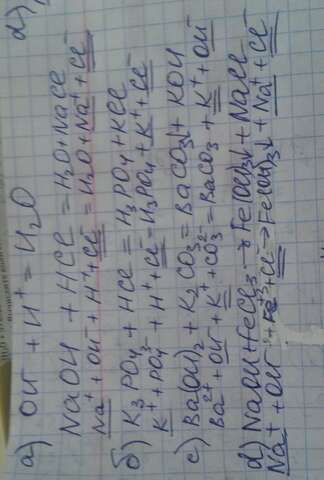 а) OH⁻ + H⁺ = H₂O
NaOH + HCl = H₂O + NaCl
Na⁺ + OH⁻ + H⁺ + Cl⁻ = H₂O + Na⁺ + Cl⁻
б) K₃PO₄ + HCl = H₃PO₄ + KCl
K⁺ + PO₄³⁻ + H⁺ + Cl⁻ = H₃PO₄ + K⁺ + Cl⁻
c) Ba(OH)₂ + K₂CO₃ = BaCO₃↓ + KOH
Ba²⁺ + OH⁻ + K⁺ + CO₃²⁻ = BaCO₃ + K⁺ + OH⁻
d) NaOH + FeCl₃ → Fe(OH)₃↓ + NaCl
Na⁺ + OH⁻ + Fe⁺³ + Cl⁻ → Fe(OH)₃↓ + Na⁺ + Cl⁻